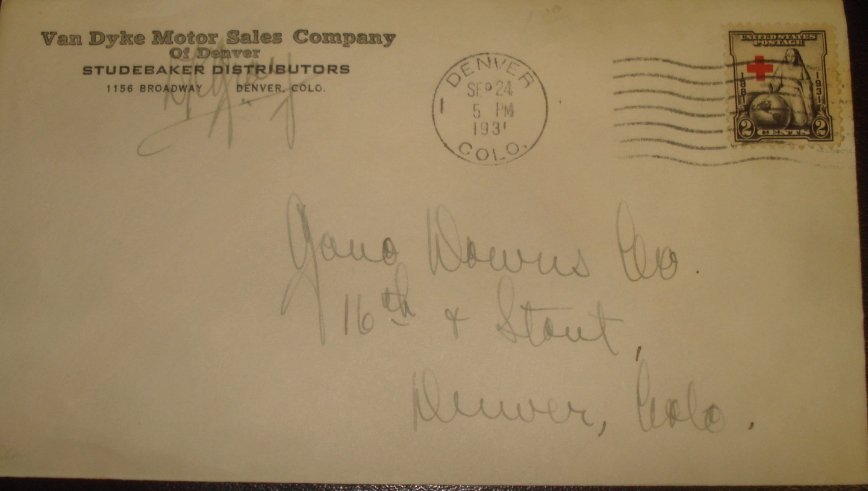 Van Dyke Motor Sales Company
Of Denver
STUDEBAKER DISTRIBUTORS
1156 BROADWAY DENVER, COLO.
DENVER
SEP 24
5 PM
1931
COLO.
1
UNITED STATES
POSTAGE
1881 1931
2 CENTS 2
Gano Downs Co.
16th & Stout,
Denver, Colo.